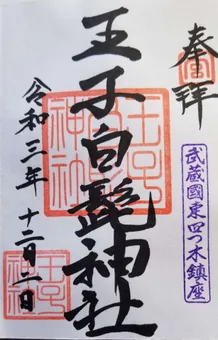 奉拝
武蔵國東四つ木鎮座
王子白髭神社
令和三年 十二月二日